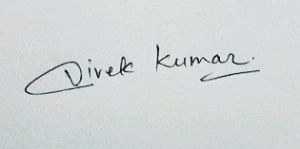 Divek Kumar.